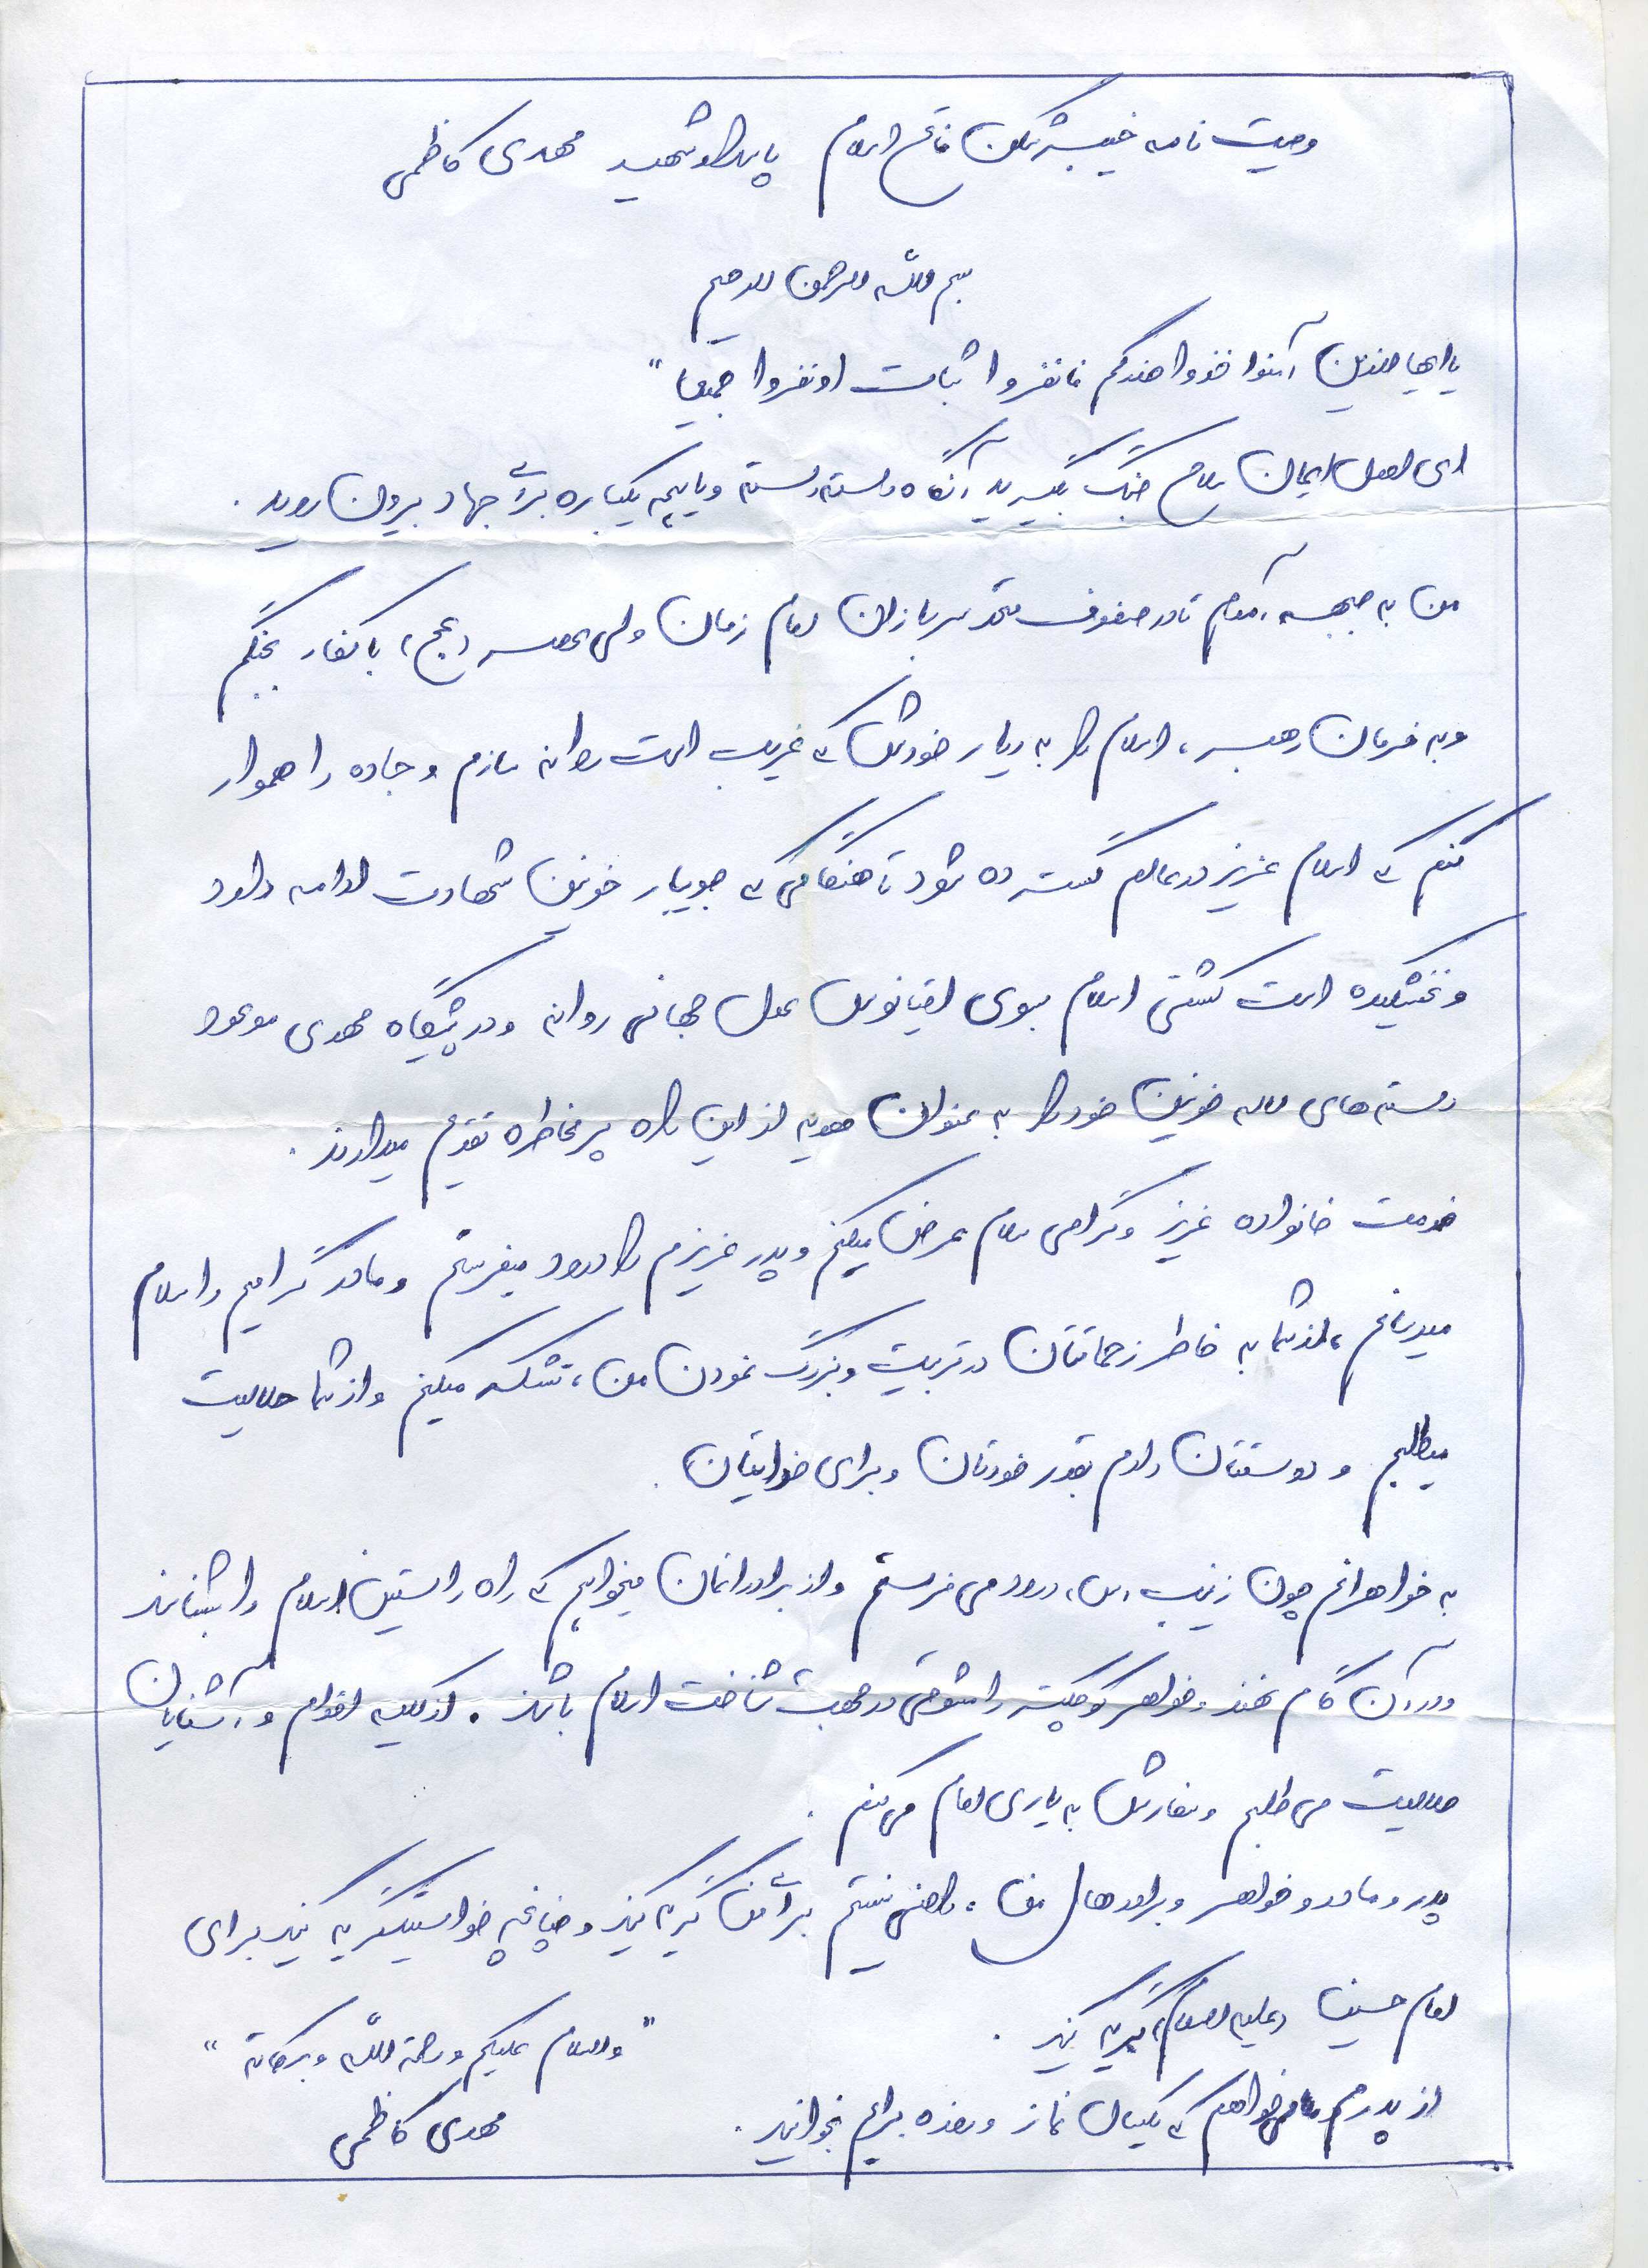 وصیت نامه خیبرشکن فاتح اسلام پاسدار شهید مهدی کاظمی
بسم الله الرحمن الرحیم
یا ایها الذین آمنوا خذوا حذرکم فانفروا ثبات اوانفروا جمیعا"
ای اهل ایمان سلاح جنگ بگیرید آنگاه دسته دسته و یا همه یکباره برای جهاد بیرون روید.
من به جبهه آمدم تا در صفوف متحد سربازان امام زمان ولی عصر (عج) با کفار بجنگم
و به فرمان رهبر، اسلام را به دیار خودش که غریب است روانه سازم و جاده را هموار
کنم که اسلام عزیز در عالم گسترده شود تا هنگامی که جویبار خونین شهادت ادامه دارد
و نخشکیده است کشتی اسلام بسوی اقیانوس عدل جهانی روانه و در پیشگاه مهدی موعود
دسته های لاله خونین خود را به عنوان هدیه از این راه پر مخاطره تقدیم میدارند.
خدمت خانواده عزیز و گرامی سلام عرض میکنم و پدر عزیزم را درود میفرستم و مادر گرامیم را سلام
میرسانم، از شما به خاطر زحماتتان در تربیت و بزرگ نمودن من، تشکر میکنم و از شما حلالیت
میطلبم و دوستتان دارم بقدر خودتان و برای خدایتان.
به خواهرانم چون زینب (س) درود می فرستم و از برادرانمان میخواهم که راه راستین اسلام را بشناسند
و در آن گام نهند و خواهر کوچکتر را مشوقی در جهت شناخت اسلام باشند. از کلیه اقوام و آشنایان
حلالیت می طلبم و سفارش به یاری امام می کنم.
پدر و مادر و خواهر و برادرهای من، راضی نیستم برای من گریه کنید و چنانچه خواستید گریه کنید برای
امام حسین (علیه السلام) گریه کنید.
"والسلام علیکم و رحمة الله و برکاته"
از پدرم میخواهم که یکسال نماز و روزه برایم بخوانید.
مهدی کاظمی